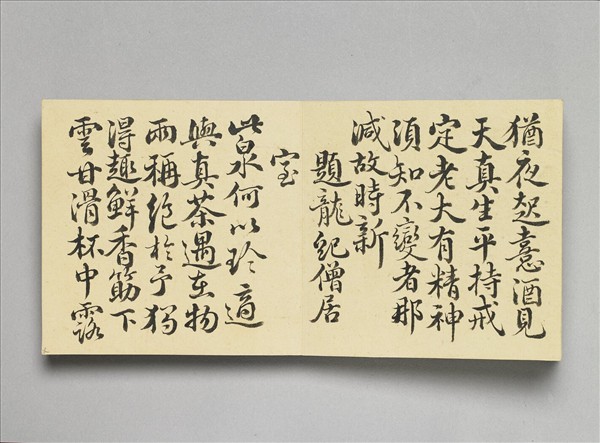 猶夜起憙酒見
天真生平持戒
定老大有精神
須知不變者那
減故時新
題龍紀僧居
室
此泉何以珍適
與真茶遇在物
兩稱絕於予獨
得趣鮮香筯下
雲甘滑杯中露